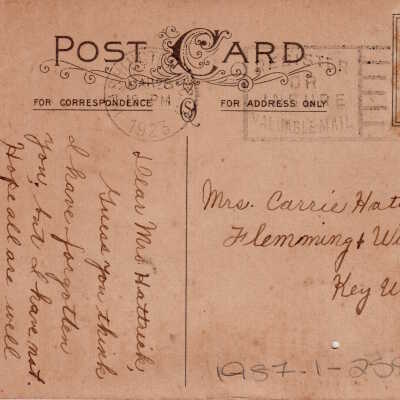 POST CARD
FOR CORRESPONDENCE
FOR ADDRESS ONLY
1923
REGISTER
OR
INSURE
VALUABLE MAIL
Dear Mrs Hattrick,
Guess you think
I have forgotten
you, but I have not.
Hope all are well
Mrs. Carrie Hatt
Flemming & W
Key W
1987.1-258